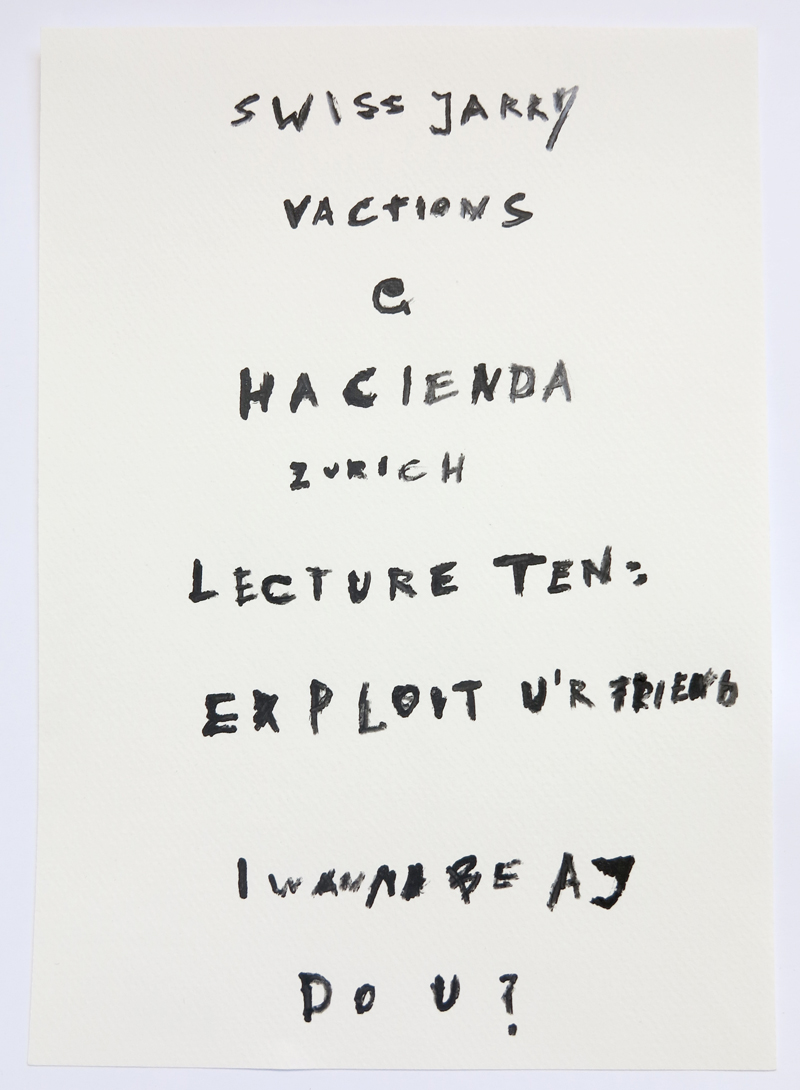 SWISS JARRY
VACTIONS
@
HACIENDA
ZURICH
LECTURE TEN:
EXPLOIT U'R FRIEND
I WANNA BE AJ
DO U?